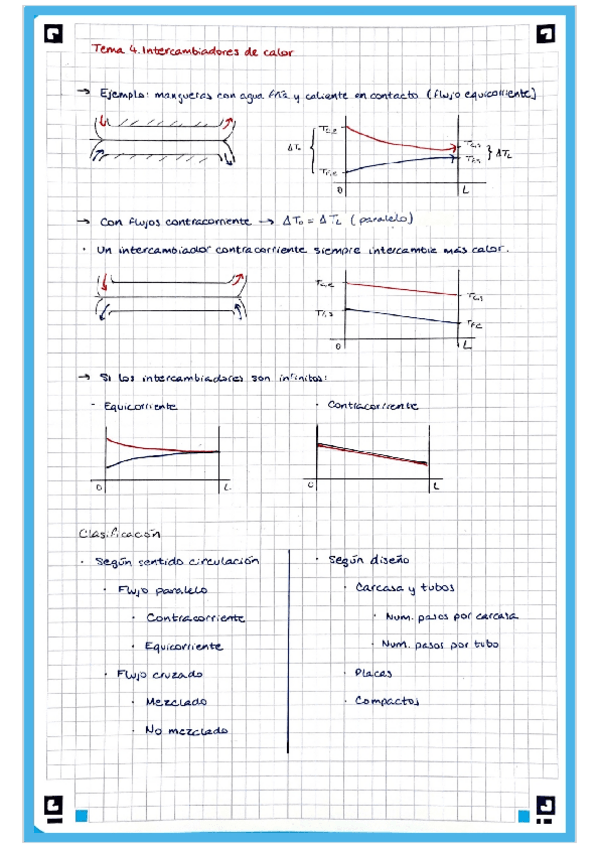 Tema 4. Intercambiadores de calor
→ Ejemplo: mangueras con agua fría y caliente en contacto (flujo equicorriente)
ΔT₀ { T_C,E T_F,E T_C,S T_F,S } ΔT_L
0 L
→ Con flujos contracorriente → ΔT₀ = ΔT_L (paralelo)
· Un intercambiador contracorriente siempre intercambia más calor.
T_C,E T_C,S
T_F,S T_F,E
0 L
→ Si los intercambiadores son infinitos:
- Equicorriente · Contracorriente
0 L 0 L
Clasificación
· Según sentido circulación
· Flujo paralelo
· Contracorriente
· Equicorriente
· Flujo cruzado
· Mezclado
· No mezclado
· Según diseño
· Carcasa y tubos
· Num. pasos por carcasa
· Num. pasos por tubo
· Placas
· Compactos